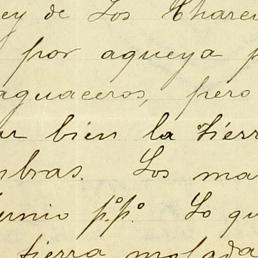 ey de Los Charc
por aqueya p
aguaceros, pero
ar bien la tierra
mbras. Los ma
unio p.º p.º Lo qu
tierra mojada